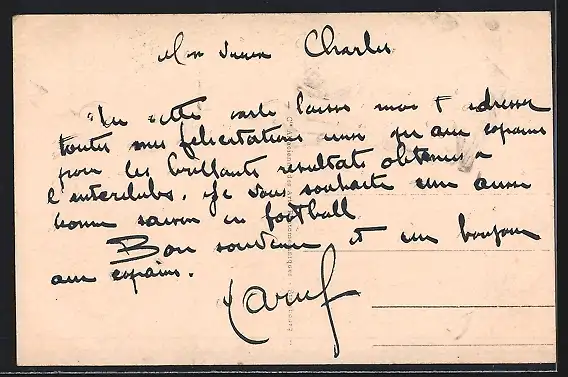 Mon vieux Charles
En cette carte laisse moi t adresser
toutes mes félicitations ainsi qu aux copains
pour les brillants resultats obtenus a
l'interclubs. Je vous souhaite une aussi
bonne saison en football
Bon souvenir et un bonjour
aux copains.